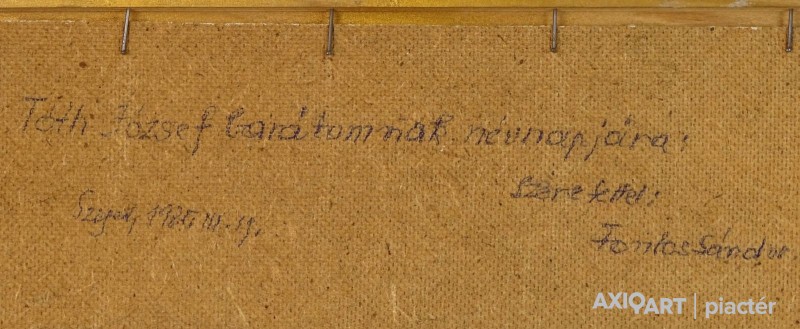 Tóth József barátomnak névnapjára:
Szeretettel:
Szeged, 1985. III. 19.
Fontos Sándor
AXIOART | piactér